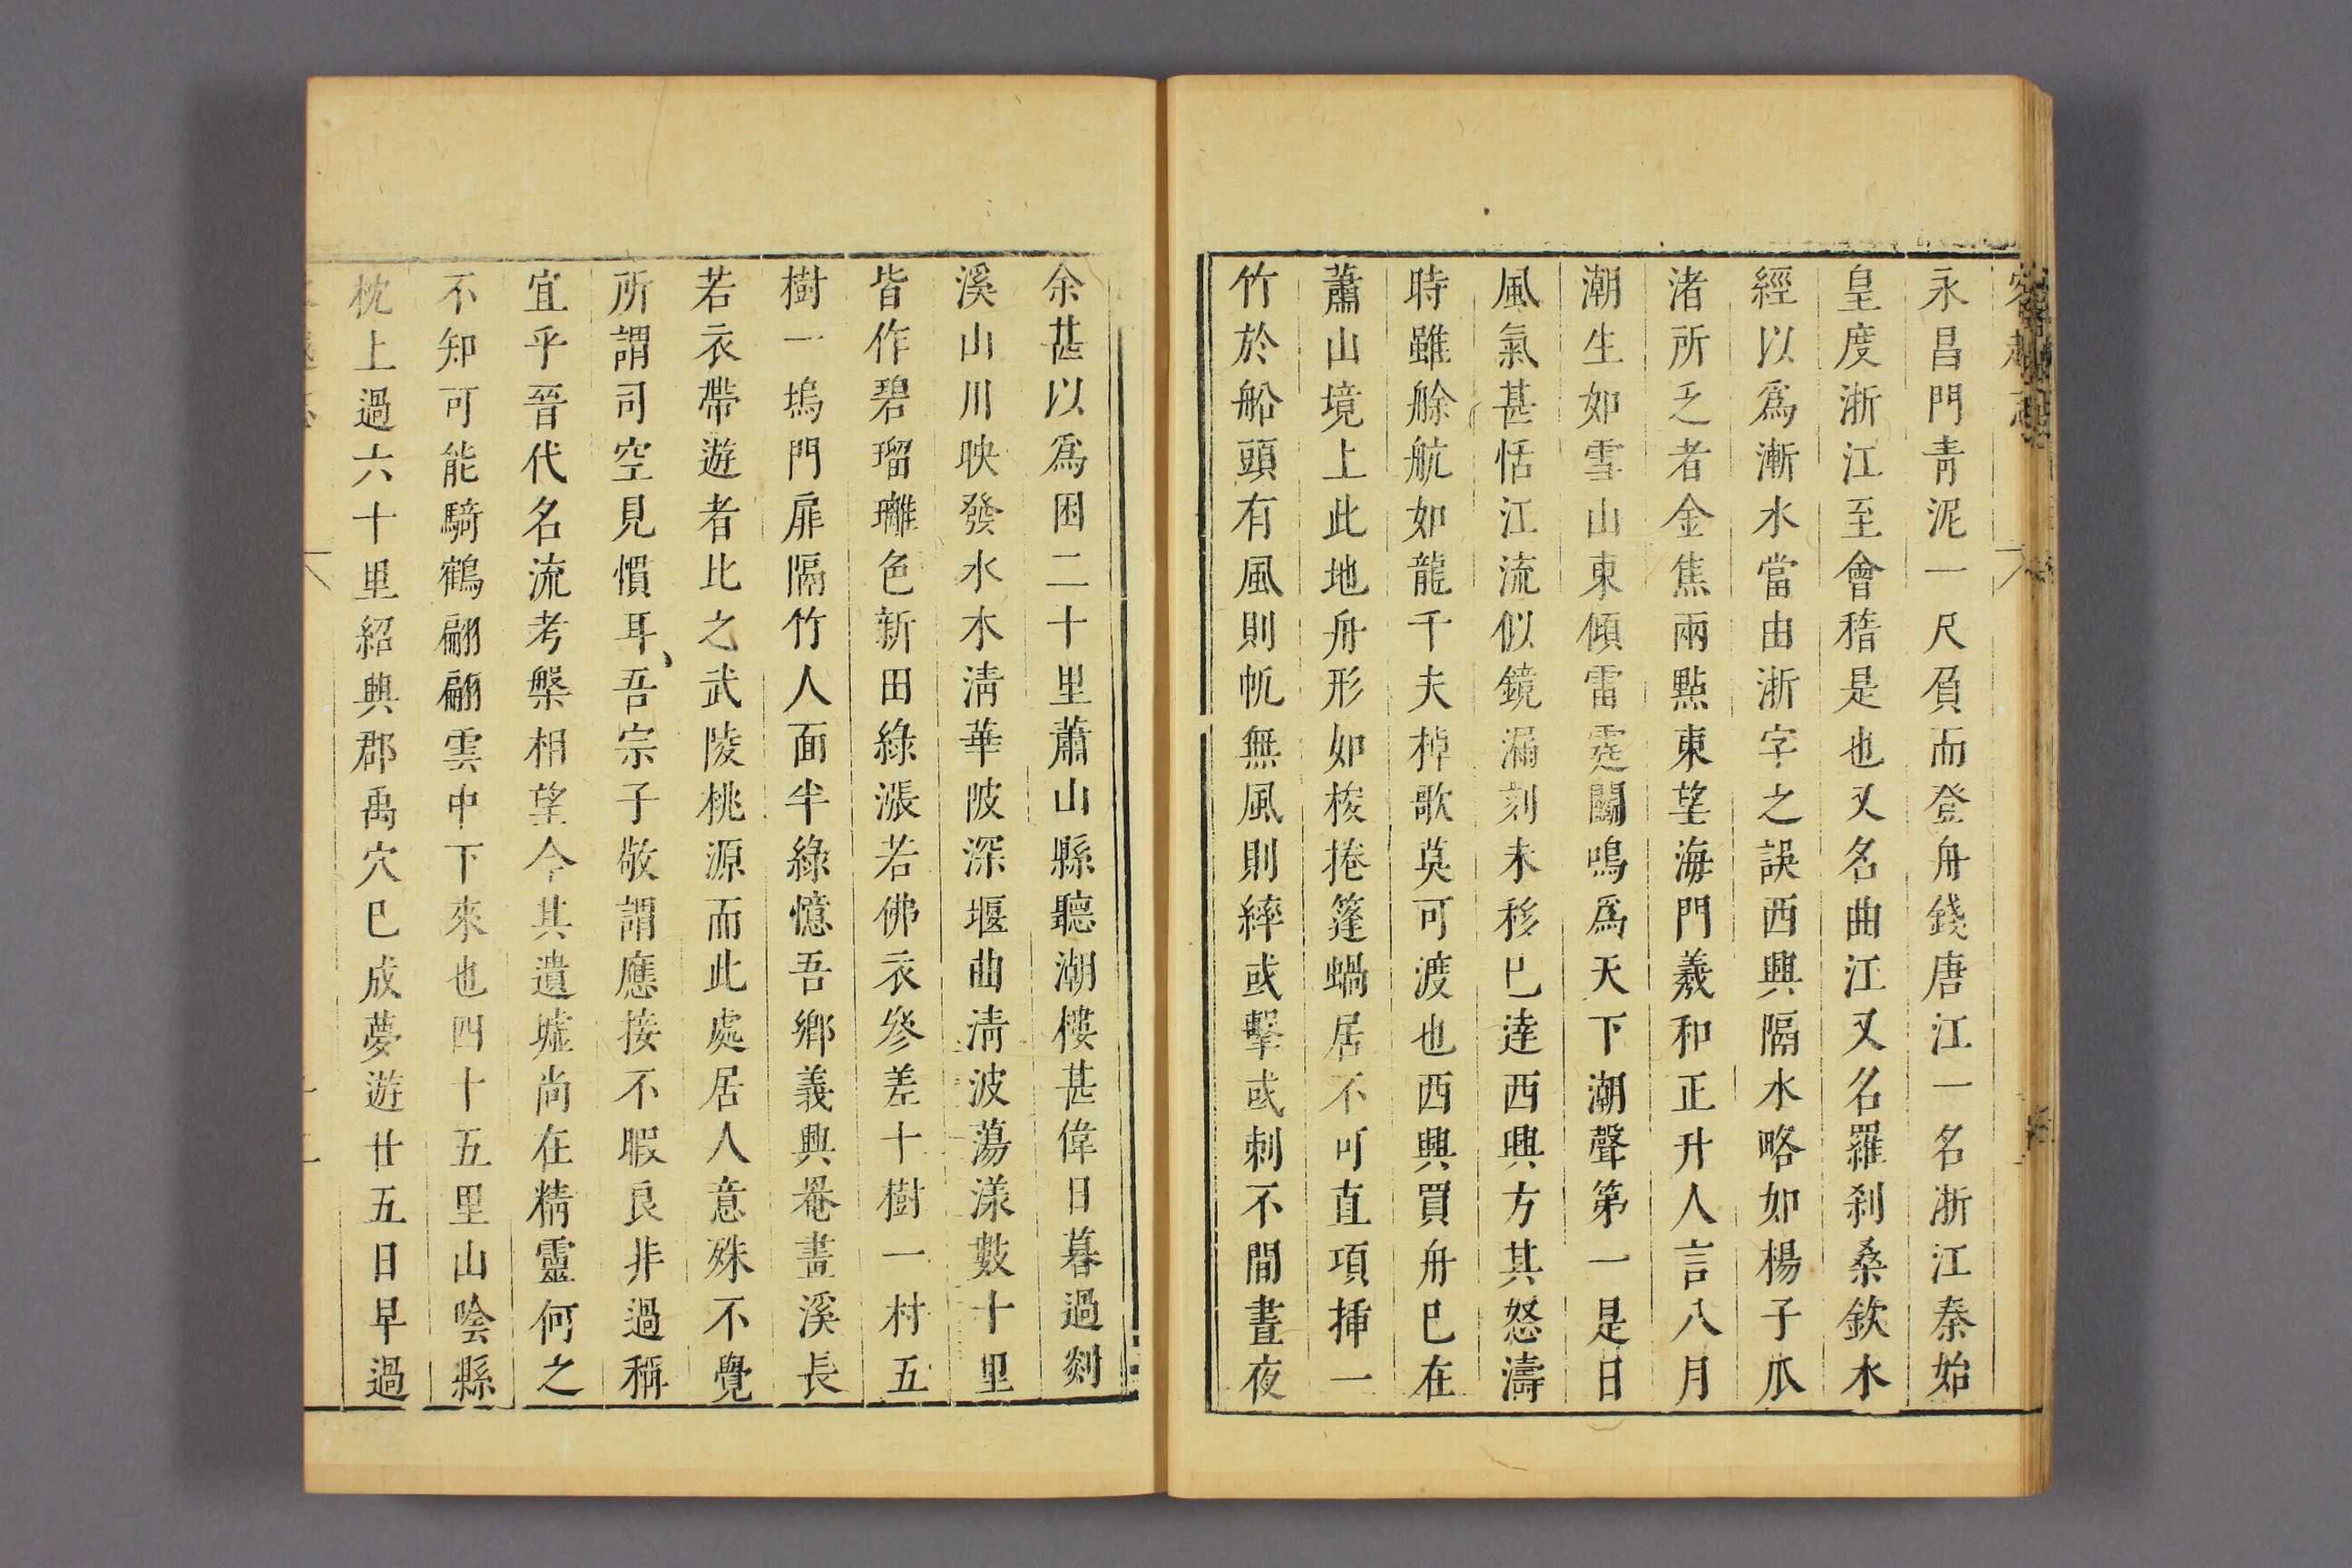 永昌門青泥一尺屓而登舟錢唐江一名浙江秦始
皇度浙江至會稽是也又名曲江又名羅刹桑欽水
經以爲漸水當由浙字之誤西興隔水略如楊子瓜
渚所乏者金焦兩點東望海門羲和正升人言八月
潮生如雪山東傾雷霆鬭鳴爲天下潮聲第一是日
風氣甚恬江流似鏡漏刻未移已達西興方其怒濤
時雖艅航如龍千夫棹歌莫可渡也西興買舟已在
蕭山境上此地舟形如梭捲篷蝸居不可直項揷一
竹於船頭有風則帆無風則縴或擊或刺不間晝夜
余甚以爲困二十里蕭山縣聽潮樓甚偉日暮過剡
溪山川映發水木淸華陂深堰曲淸波蕩漾數十里
皆作碧瑠璃色新田綠漲若佛衣參差十樹一村五
樹一塢門扉隔竹人面半綠憶吾鄉義興罨畫溪長
若衣帶遊者比之武陵桃源而此處居人意殊不覺
所謂司空見慣耳、吾宗子敬謂應接不暇良非過稱
宜乎晉代名流考槃相望今其遺墟尚在精靈何之
不知可能騎鶴翩翩雲中下來也四十五里山陰縣
枕上過六十里紹興郡禹穴已成夢遊廿五日早過